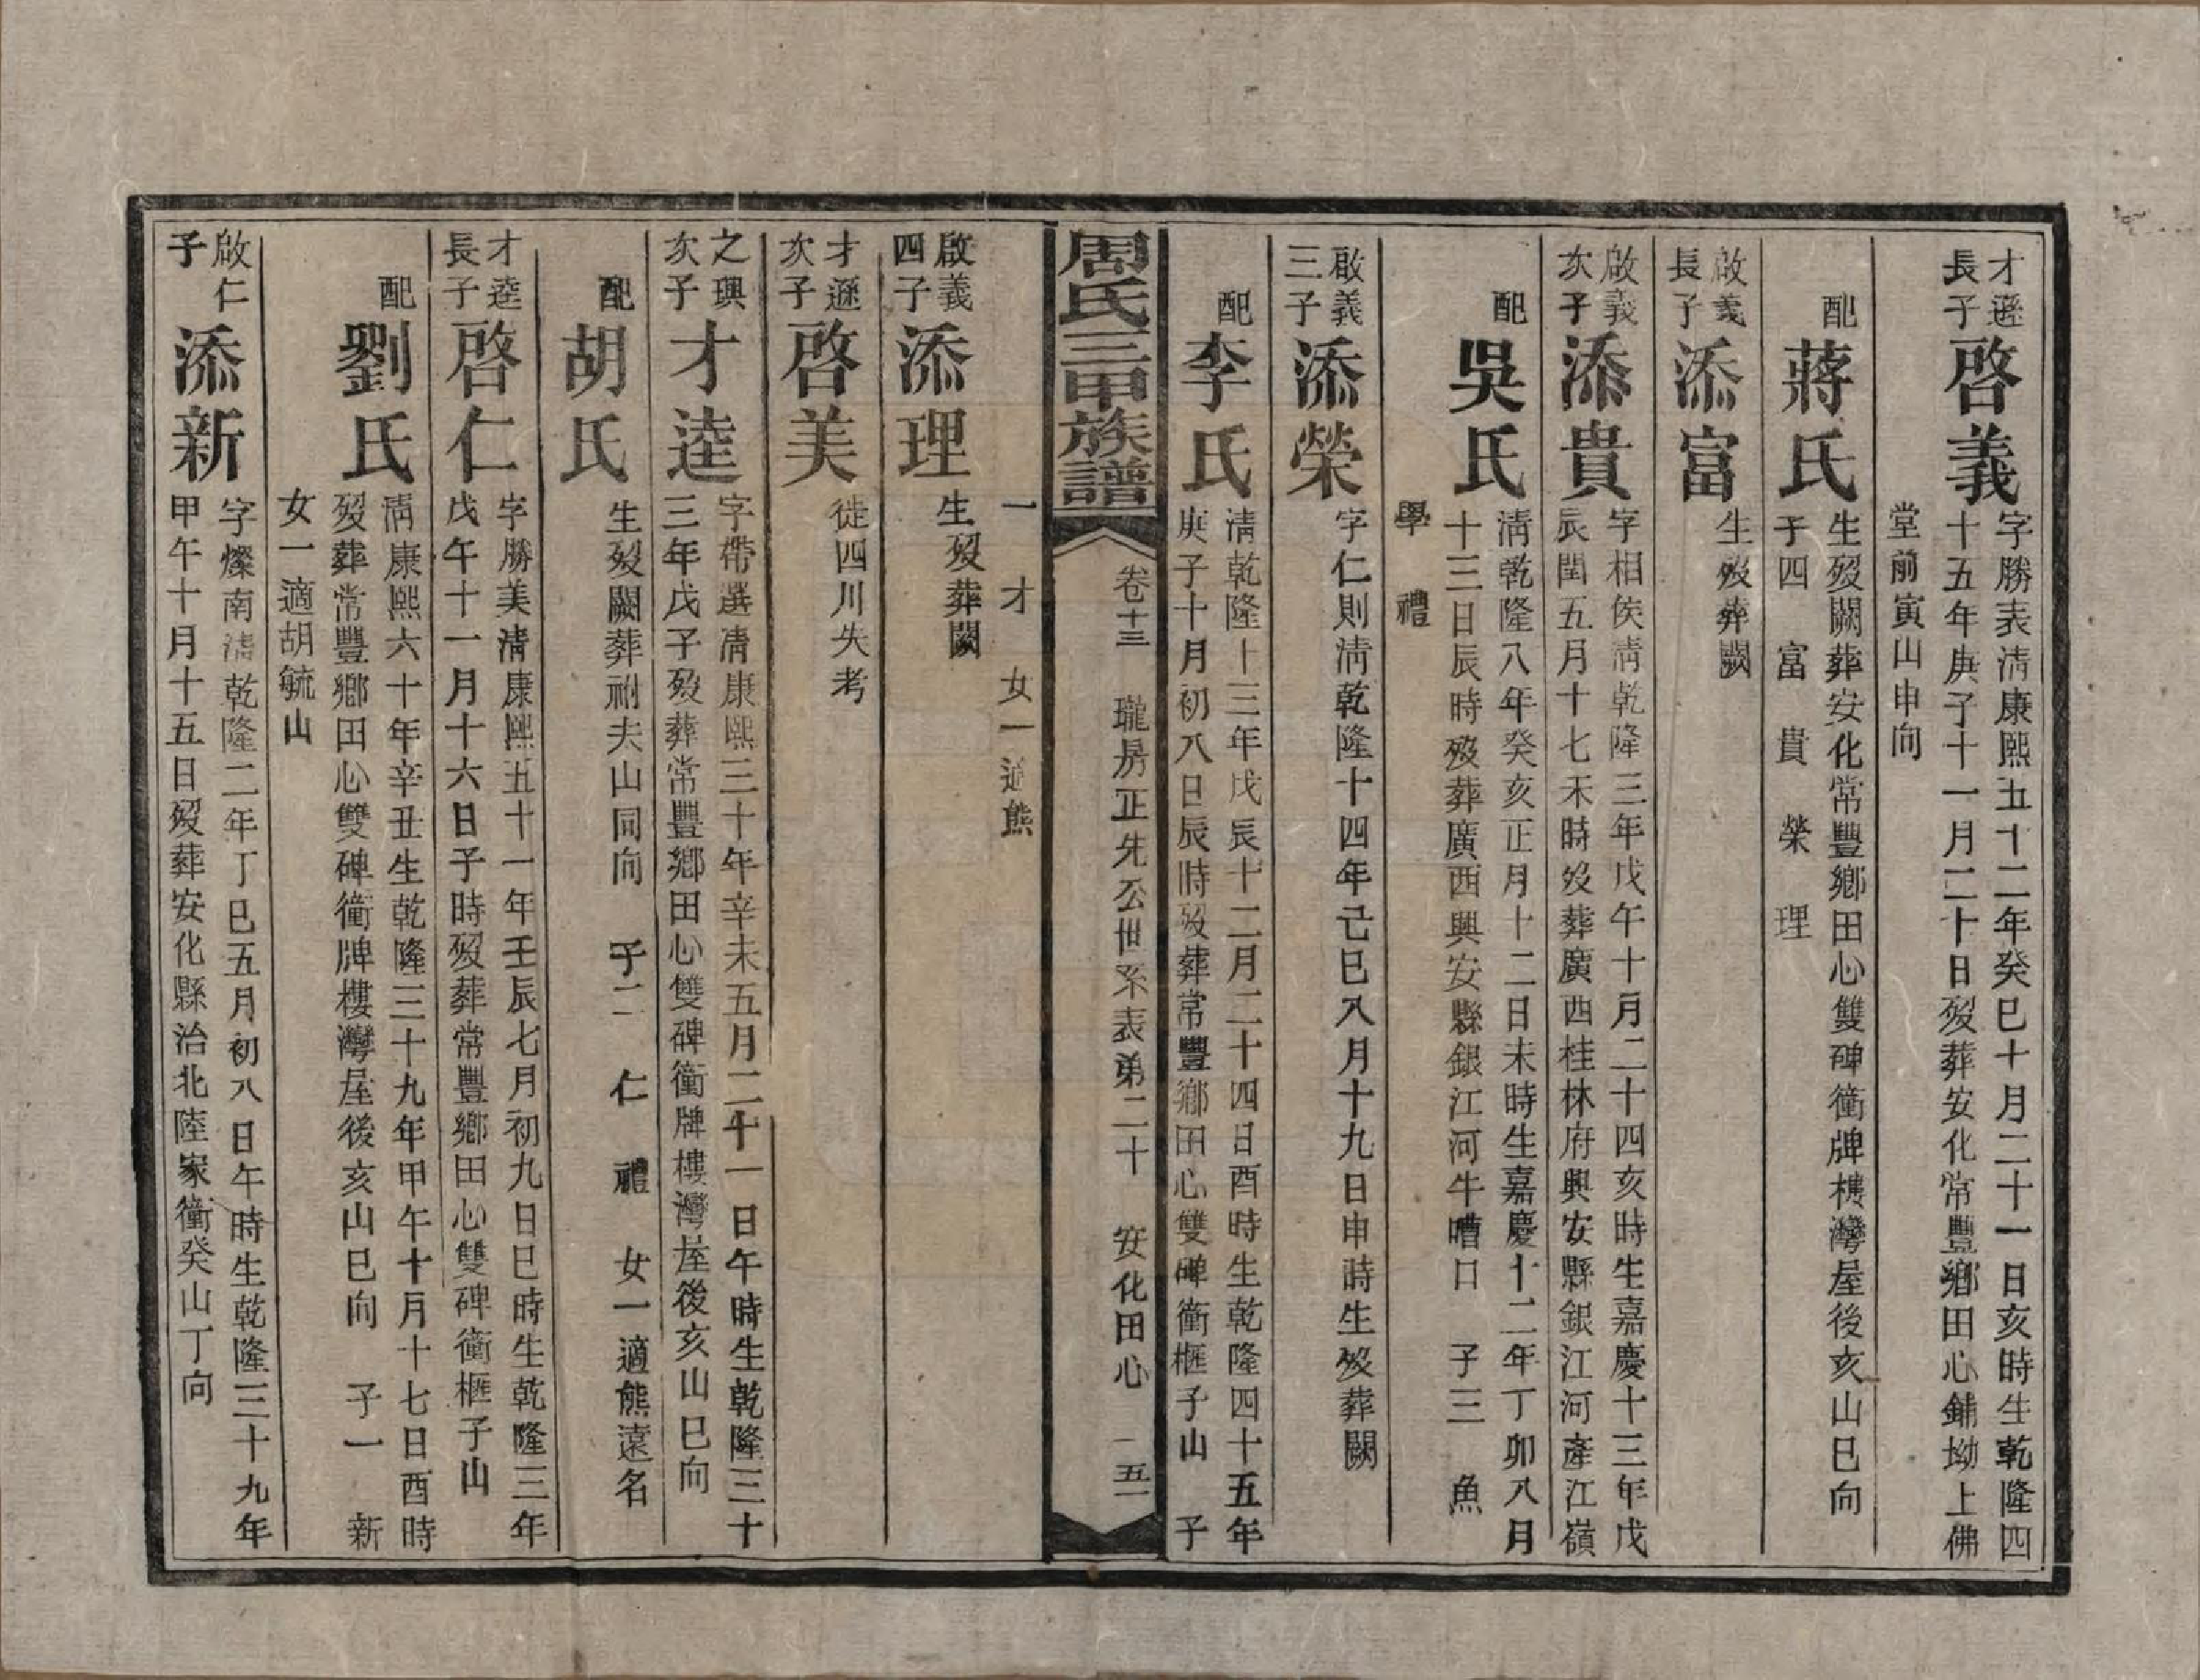 才遜
長子
啓義
字勝表淸康熙五十二年癸巳十月二十一日亥時生乾隆四
十五年庚子十一月二十日歿葬安化常豐鄉田心鋪坳上佛
堂前寅山申向
配
蔣氏
生歿闕葬安化常豐鄉田心雙碑衝牌樓灣屋後亥山巳向
子四 富 貴 榮 理
啟義
長子
添富
生歿葬闕
啟義
次子
添貴
字相侯淸乾隆三年戊午十月二十四亥時生嘉慶十三年戊
辰閏五月十七未時歿葬廣西桂林府興安縣銀江河產江嶺
配
吳氏
淸乾隆八年癸亥正月十二日未時生嘉慶十二年丁卯八月
十三日辰時歿葬廣西興安縣銀江河牛嘈口 子三 魚
學 禮
啟義
三子
添榮
字仁則淸乾隆十四年己巳八月十九日申時生歿葬闕
配
李氏
淸乾隆十三年戊辰十二月二十四日酉時生乾隆四十五年
庚子十月初八日辰時歿葬常豐鄉田心雙碑衝榧子山 子
周氏三甲族譜
卷十三 瓏房正先公世系表弟二十 安化田心 一五
一 才 女一適熊
啟義
四子
添理
生歿葬闕
才遜
次子
啓美
徙四川失考
之興
次子
才逵
字帶選淸康熙三十年辛未五月二十一日午時生乾隆三十
三年戊子歿葬常豐鄉田心雙碑衝牌樓灣屋後亥山巳向
配
胡氏
生歿闕葬祔夫山同向 子二 仁 禮 女一適熊遠名
才逵
長子
啓仁
字勝美淸康熙五十一年壬辰七月初九日巳時生乾隆三年
戊午十一月十六日子時歿葬常豐鄉田心雙碑衝榧子山
配
劉氏
淸康熙六十年辛丑生乾隆三十九年甲午十月十七日酉時
歿葬常豐鄉田心雙碑衝牌樓灣屋後亥山巳向 子一 新
女一適胡毓山
啟仁
子
添新
字燦南淸乾隆二年丁巳五月初八日午時生乾隆三十九年
甲午十月十五日歿葬安化縣治北陸家衝癸山丁向